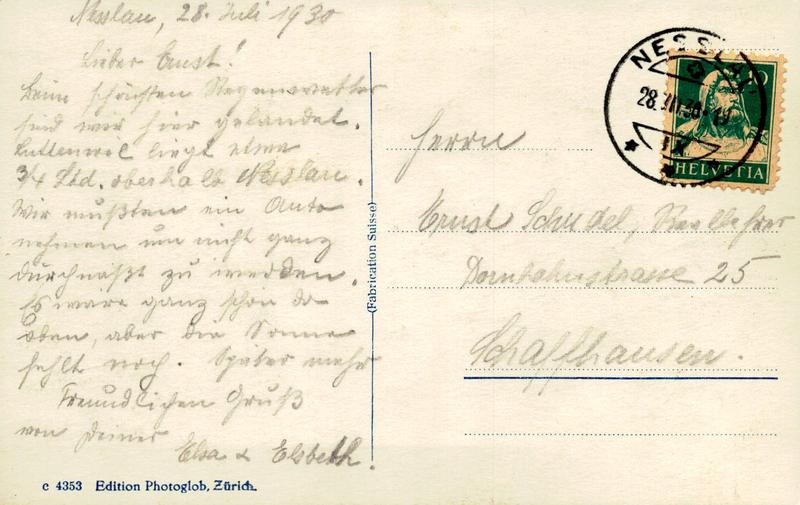 Nesslau, 28. Juli 1930
Lieber Ernst!
Beim schönsten Regenwetter
sind wir hier gelandet.
liegt etwa
3/4 Std. oberhalb Nesslau.
Wir mußten ein Auto
nehmen um nicht ganz
durchnäßt zu werden.
Es wäre ganz schön da
oben, aber die Sonne
fehlt noch. Später mehr
Freundlichen Gruß
von Deiner
Elsa & Elsbeth.
c 4353 Edition Photoglob, Zürich.
(Fabrication Suisse)
NESSLAU
28. VII. 30
IX
10
HELVETIA
Herrn
Ernst Schudel, Reallehrer
25
Schaffhausen.